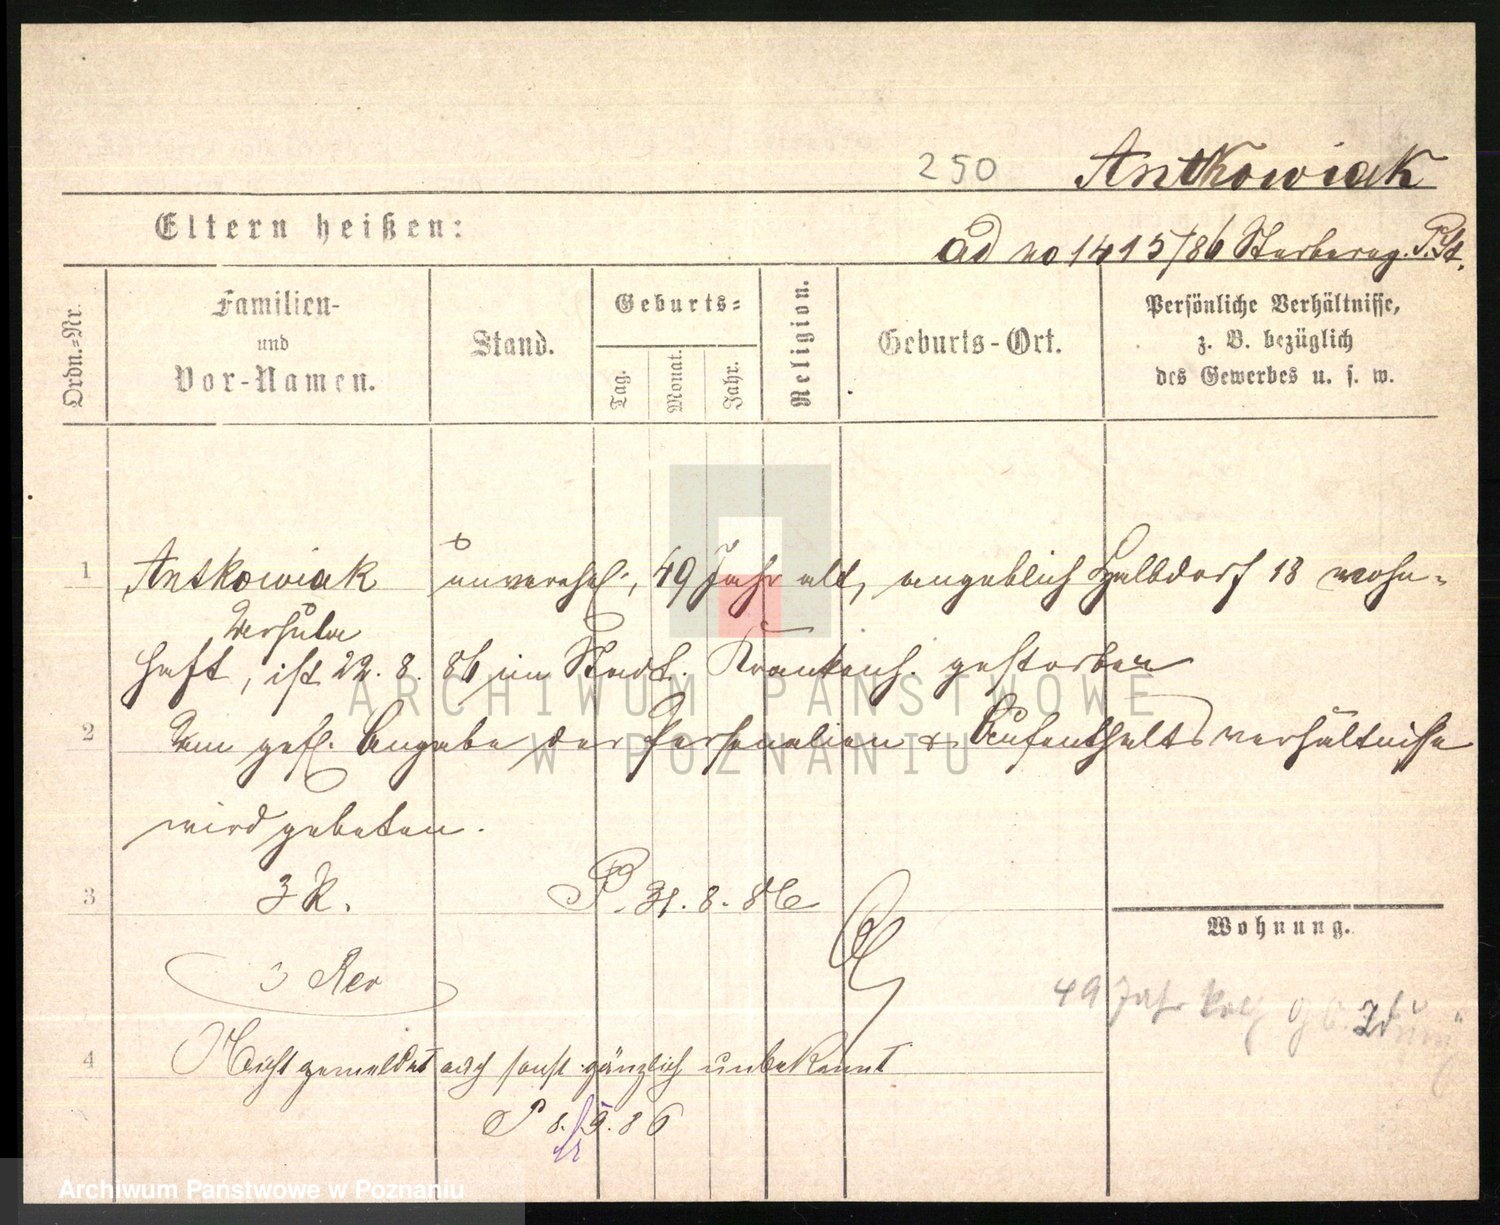 250 Antkowiak
Eltern heißen:
ad no 1415/86 Sterbereg. P. St.
Ordn.-Nr.
Familien-
und
Vor-Namen.
Stand.
Geburts-
Tag.
Monat.
Jahr.
Religion.
Geburts-Ort.
Persönliche Verhältnisse,
z. B. bezüglich
des Gewerbes u. s. w.
1 Antkowiak unverehel., 49 Jahr alt, angeblich Halbdorf 18 wohn-
Ursula
haft, ist 22. 8. 86 im Stadt. Krankenh. gestorben
2 Um gefl. Angabe der Personalien & Aufenthaltsverhältnisse
wird gebeten.
3 3 R. P. 31. 8. 86
Wohnung.
3 Rev
49 Jahr
4 Nicht gemeldet auch sonst gänzlich unbekannt
P 8. 9. 86
ARCHIWUM PAŃSTWOWE
W POZNANIU
Archiwum Państwowe w Poznaniu